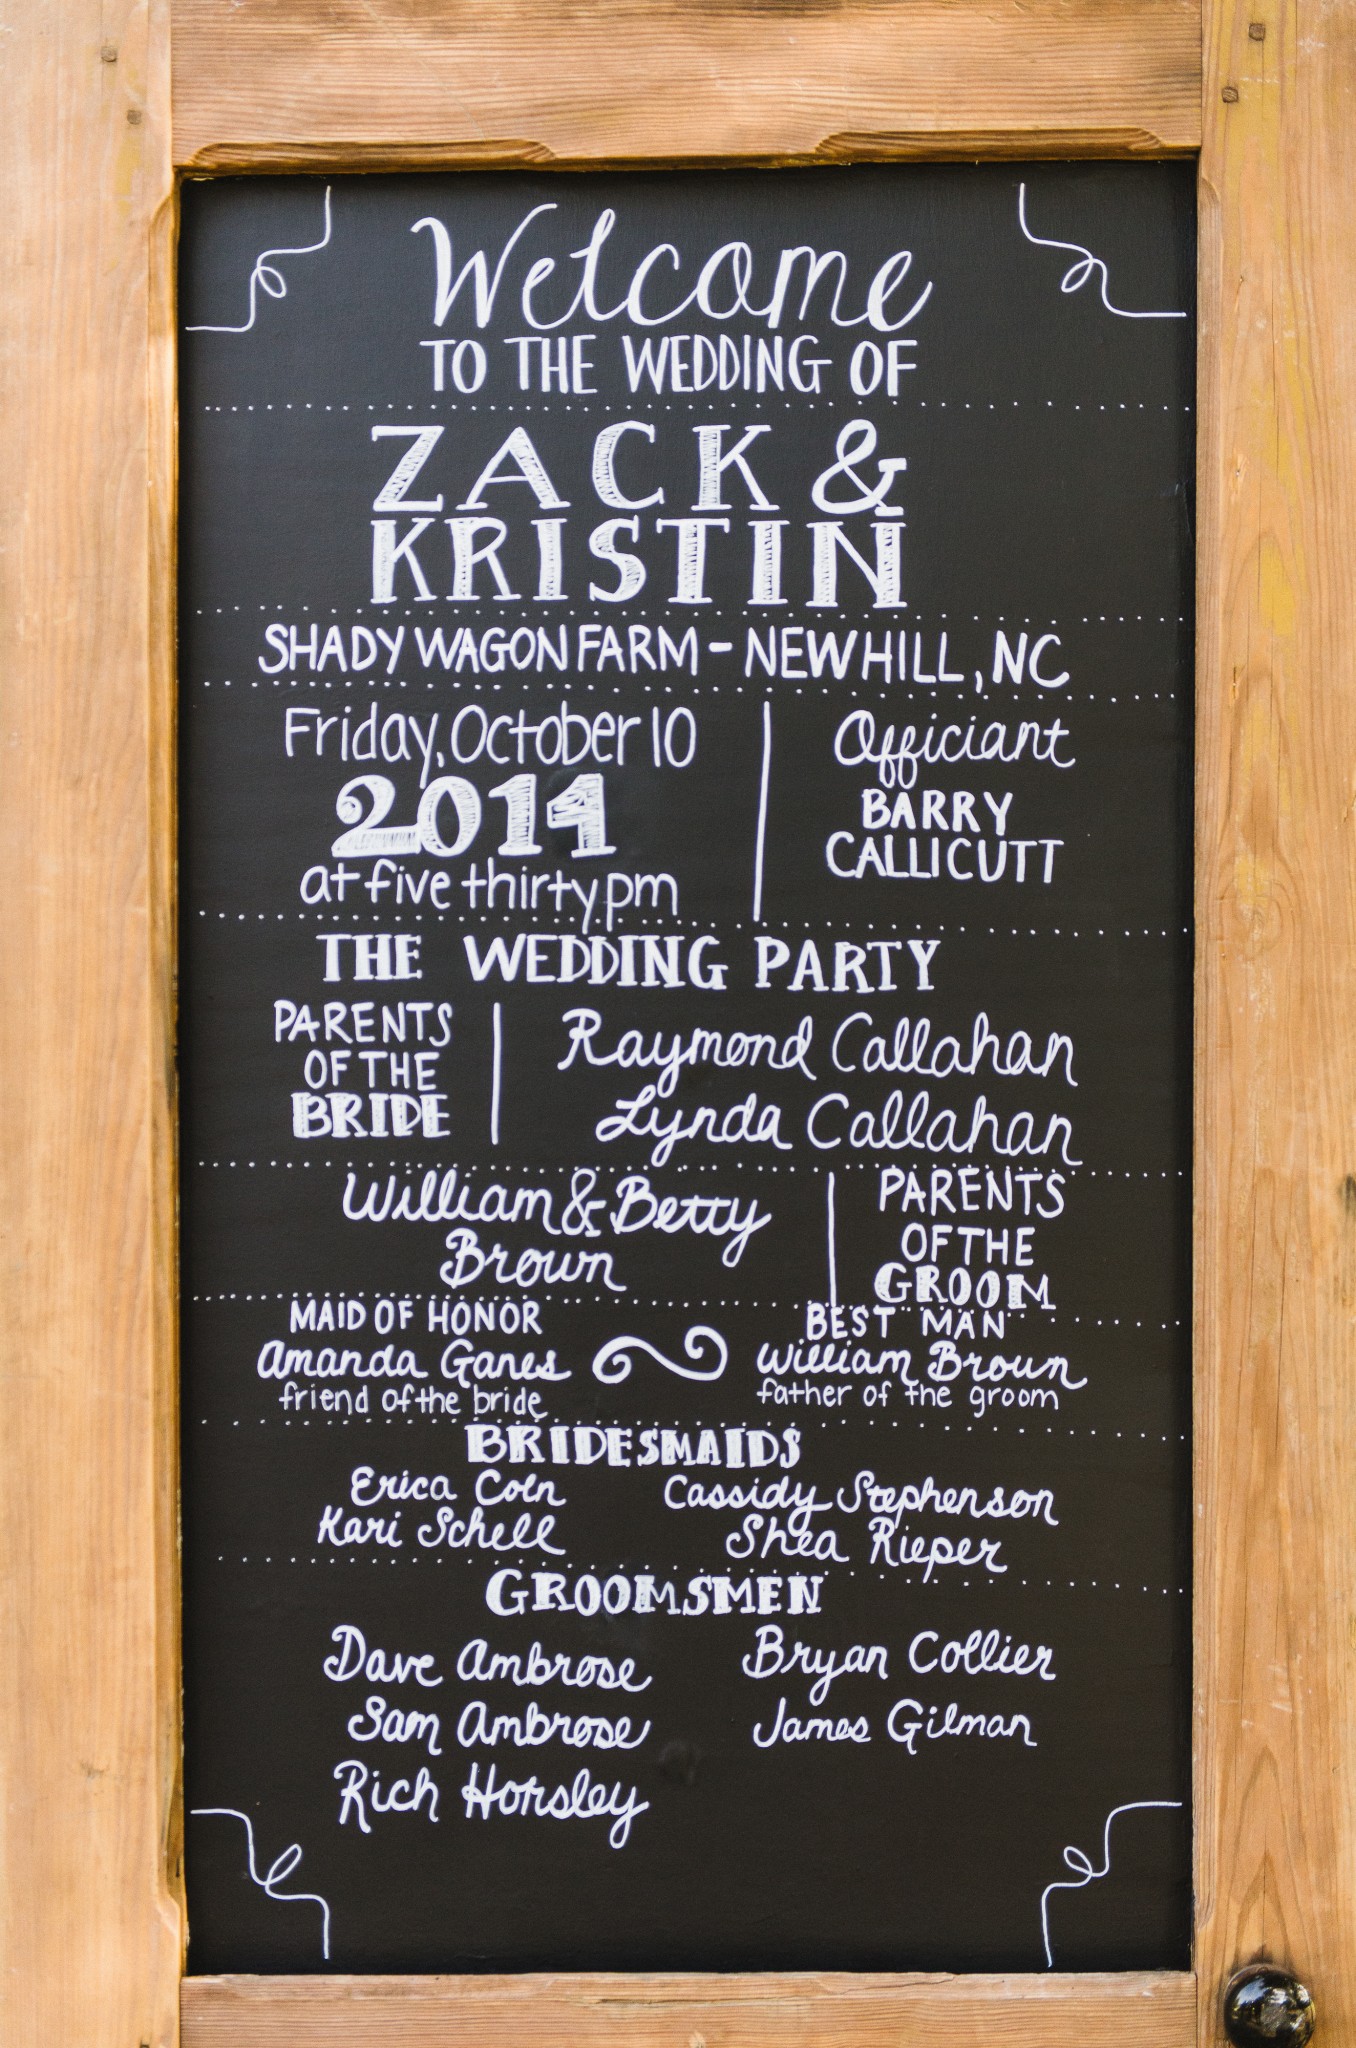 Welcome
TO THE WEDDING OF
ZACK &
KRISTIN
SHADY WAGON FARM - NEW HILL, NC
Friday, October 10
2014
at five thirty pm
Officiant
BARRY
CALLICUTT
THE WEDDING PARTY
PARENTS
OF THE
BRIDE
Raymond Callahan
Lynda Callahan
William & Betty
Brown
PARENTS
OF THE
GROOM
MAID OF HONOR
Amanda Ganes
friend of the bride
BEST MAN
William Brown
father of the groom
BRIDESMAIDS
Erica Coln Cassidy Stephenson
Kari Schell Shea Rieper
GROOMSMEN
Dave Ambrose Bryan Collier
Sam Ambrose James Gilman
Rich Horsley